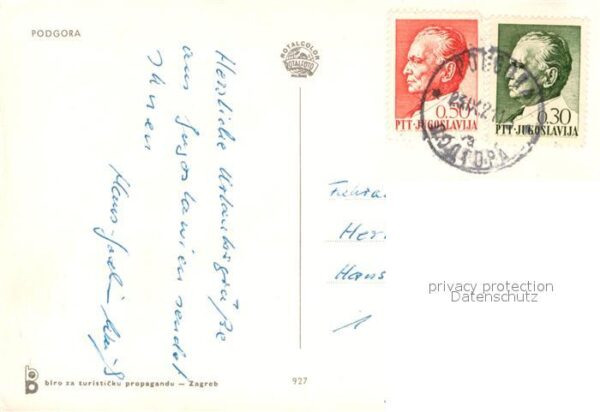 PODGORA
ROTALCOLOR
ROTALFOTO
0.50
PTT·JUGOSLAVIJA
0.30
PTT·JUGOSLAVIJA
ПОДГОРА
Herzliche Urlaubsgrüße
aus Jugoslawien sendet
Ihnen
Hans-
Her
Hans
1
privacy protection
Datenschutz
biro za turističku propagandu — Zagreb
927